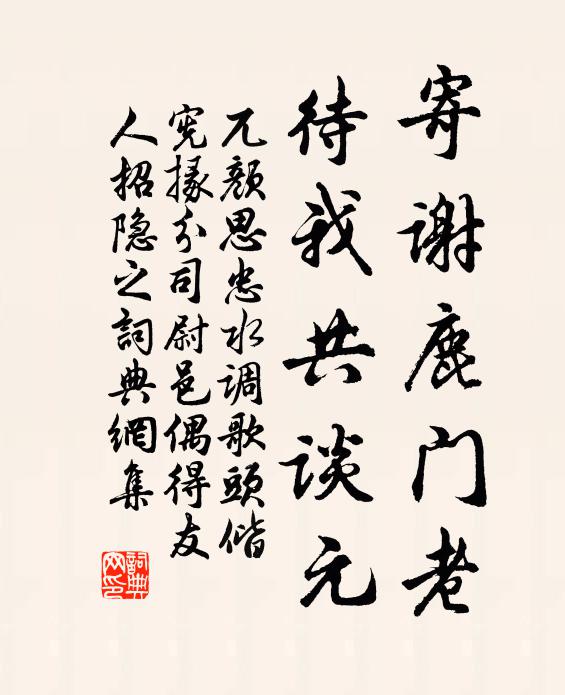 寄谢鹿门老
待我共谈元
兀颜思忠水调歌頭偕
宪掾分司尉邑偶得友
人招隐之詞典網集
詞典网印